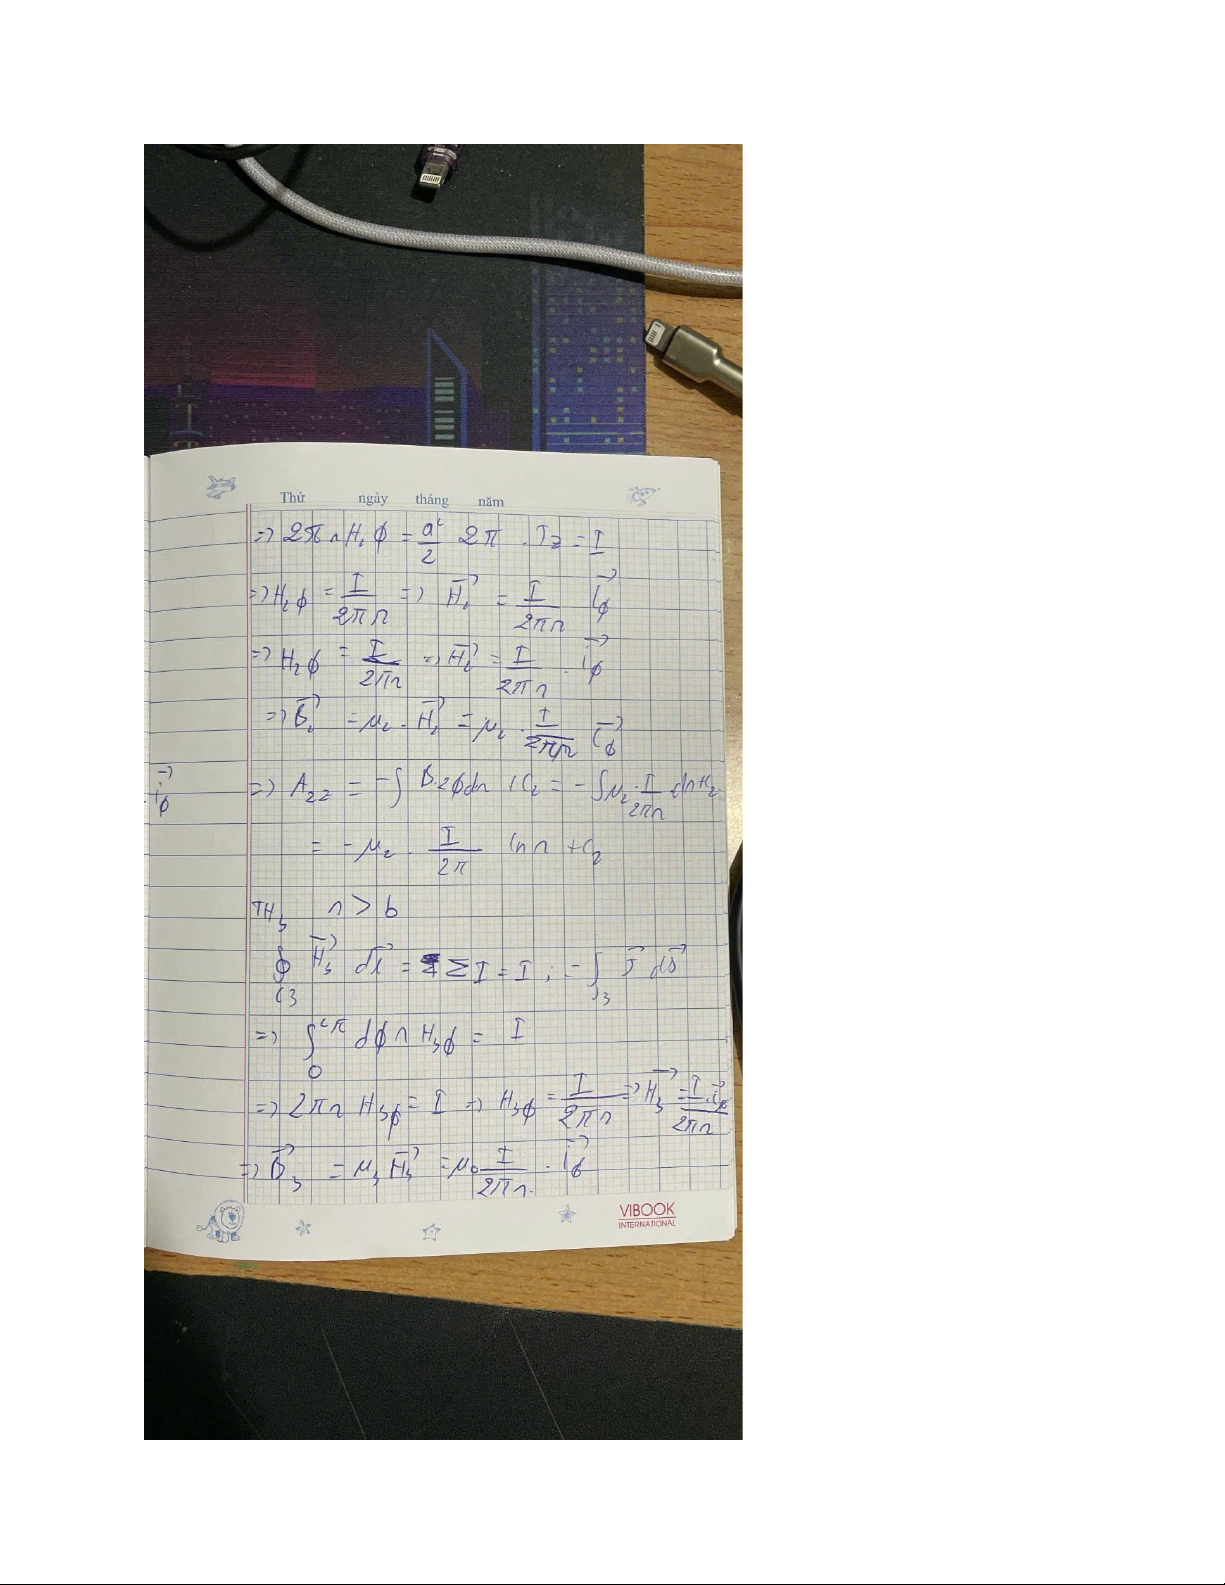 Thứ ngày tháng năm
=> 2π r H₂φ = a²/2 2π . Jz = I
=> H₂φ = I/2πr => H₂→ = I/2πr i→φ
=> H₂φ = I/2πr => H₂→ = I/2πr . i→φ
=> B₂→ = μ₂ . H₂→ = μ₂ . I/2πr i→φ
i→φ
=> A₂z = -∫ B₂φdr + C₂ = -∫μ₂ . I/2πr dr + C₂
= -μ₂ . I/2π ln r + C₂
TH₃ r > b
∮C3 H₃→ dl→ = Σ I = I ; = ∫S3 J→ ds→
=> ∫₀^2π dφ r H₃φ = I
=> 2πr H₃φ = I => H₃φ = I/2πr => H₃→ = I/2πr . i→φ
=> B→₃ = μ₃ H₃→ = μ₀ I/2πr . i→φ
VIBOOK
INTERNATIONAL